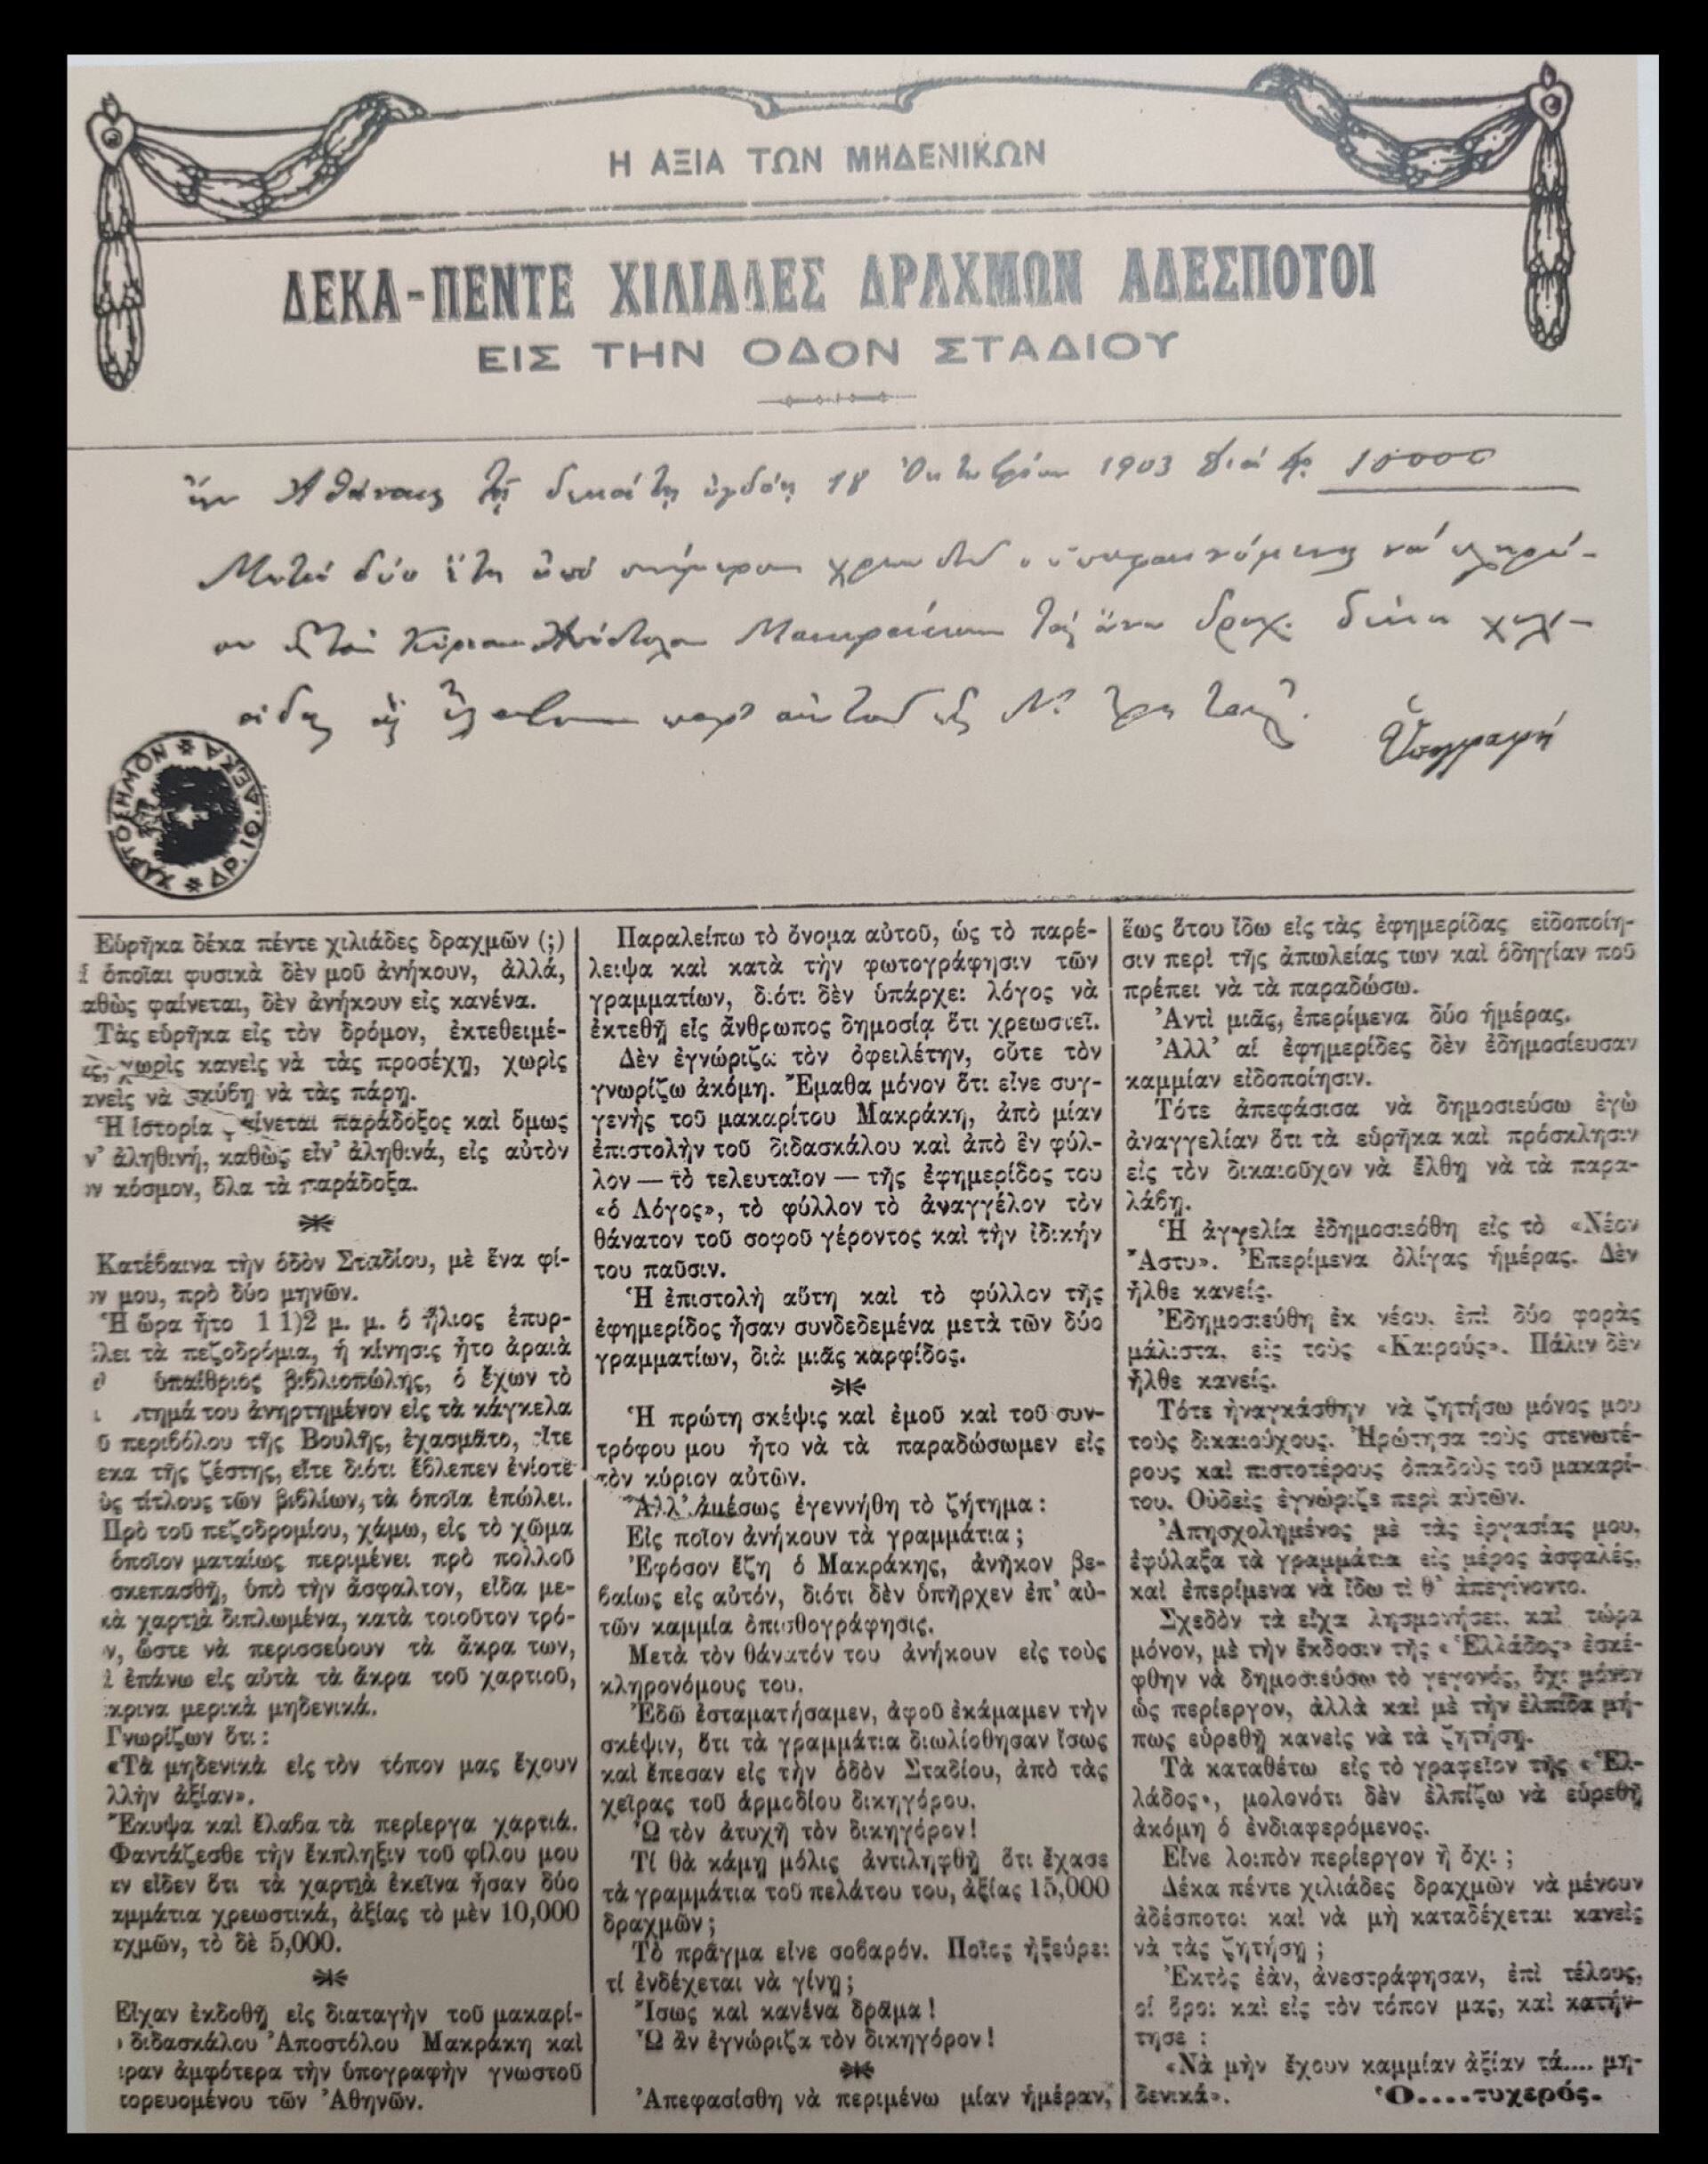 Η ΑΞΙΑ ΤΩΝ ΜΗΔΕΝΙΚΩΝ
ΔΕΚΑ-ΠΕΝΤΕ ΧΙΛΙΑΔΕΣ ΔΡΑΧΜΩΝ ΑΔΕΣΠΟΤΟΙ
ΕΙΣ ΤΗΝ ΟΔΟΝ ΣΤΑΔΙΟΥ
Ἐν Ἀθήναις τῇ δεκάτῃ ὀγδόῃ 18 Ὀκτωβρίου 1903 διά δρ. 10000
Μετά δύο ἔτη ἀπό σήμερον χρεωστῶ ὁ ὑποφαινόμενος νά πληρώ-
σω εἰς τόν Κύριον Ἀπόστολον Μακράκην τάς ἄνω δραχ. δέκα χιλι-
άδας ἅς ἔλαβον παρ' αὐτοῦ εἰς
Ὑπογραφή
ΧΑΡΤΟΣΗΜΟΝ ΔΕΚΑ
Εὑρῆκα δέκα πέντε χιλιάδες δραχμῶν (;)
ἱ ὁποῖαι φυσικὰ δὲν μοῦ ἀνήκουν, ἀλλά,
αθὼς φαίνεται, δὲν ἀνήκουν εἰς κανένα.
Τὰς εὑρῆκα εἰς τὸν δρόμον, ἐκτεθειμέ-
ας, χωρὶς κανεὶς νὰ τὰς προσέχῃ, χωρὶς
ανεὶς νὰ σκύβῃ νὰ τὰς πάρῃ.
Ἡ ἱστορία φαίνεται παράδοξος καὶ ὅμως
ν' ἀληθινή, καθὼς εἶν' ἀληθινά, εἰς αὐτὸν
ὸν κόσμον, ὅλα τὰ παράδοξα.
Κατέβαινα τὴν ὁδὸν Σταδίου, μὲ ἕνα φί-
ον μου, πρὸ δύο μηνῶν.
Ἡ ὥρα ἦτο 1 1)2 μ. μ. ὁ ἥλιος ἐπυρ-
λει τὰ πεζοδρόμια, ἡ κίνησις ἦτο ἀραιὰ
ὑπαίθριος βιβλιοπώλης, ὁ ἔχων τὸ
τημά του ἀνηρτημένον εἰς τὰ κάγκελα
ῦ περιβόλου τῆς Βουλῆς, ἐχασμᾶτο, εἴτε
εκα τῆς ζέστης, εἴτε διότι ἔβλεπεν ἐνίοτε
ὺς τίτλους τῶν βιβλίων, τὰ ὁποῖα ἐπώλει.
Πρὸ τοῦ πεζοδρομίου, χάμω, εἰς τὸ χῶμα
ὁποῖον ματαίως περιμένει πρὸ πολλοῦ
σκεπασθῇ, ὑπὸ τὴν ἄσφαλτον, εἶδα με-
κὰ χαρτιὰ διπλωμένα, κατὰ τοιοῦτον τρό-
ν, ὥστε νὰ περισσεύουν τὰ ἄκρα των,
ὶ ἐπάνω εἰς αὐτὰ τὰ ἄκρα τοῦ χαρτιοῦ,
έκρινα μερικὰ μηδενικά.
Γνωρίζων ὅτι:
«Τὰ μηδενικὰ εἰς τὸν τόπον μας ἔχουν
λλὴν ἀξίαν».
Ἔκυψα καὶ ἔλαβα τὰ περίεργα χαρτιά.
Φαντάζεσθε τὴν ἔκπληξιν τοῦ φίλου μου
αν εἶδεν ὅτι τὰ χαρτιὰ ἐκεῖνα ἦσαν δύο
αμμάτια χρεωστικά, ἀξίας τὸ μὲν 10,000
αχμῶν, τὸ δὲ 5,000.
Εἶχαν ἐκδοθῇ εἰς διαταγὴν τοῦ μακαρί-
υ διδασκάλου Ἀποστόλου Μακράκη καὶ
εραν ἀμφότερα τὴν ὑπογραφὴν γνωστοῦ
τορευομένου τῶν Ἀθηνῶν.
Παραλείπω τὸ ὄνομα αὐτοῦ, ὡς τὸ παρέ-
λειψα καὶ κατὰ τὴν φωτογράφησιν τῶν
γραμματίων, διότι δὲν ὑπάρχει λόγος νὰ
ἐκτεθῇ εἰς ἄνθρωπος δημοσίᾳ ὅτι χρεωστεῖ.
Δὲν ἐγνώριζα τὸν ὀφειλέτην, οὔτε τὸν
γνωρίζω ἀκόμη. Ἔμαθα μόνον ὅτι εἶνε συγ-
γενὴς τοῦ μακαρίτου Μακράκη, ἀπὸ μίαν
ἐπιστολὴν τοῦ διδασκάλου καὶ ἀπὸ ἓν φύλ-
λον — τὸ τελευταῖον — τῆς ἐφημερίδος του
«ὁ Λόγος», τὸ φύλλον τὸ ἀναγγέλον τὸν
θάνατον τοῦ σοφοῦ γέροντος καὶ τὴν ἰδικήν
του παῦσιν.
Ἡ ἐπιστολὴ αὕτη καὶ τὸ φύλλον τῆς
ἐφημερίδος ἦσαν συνδεδεμένα μετὰ τῶν δύο
γραμματίων, διὰ μιᾶς καρφίδος.
Ἡ πρώτη σκέψις καὶ ἐμοῦ καὶ τοῦ συν-
τρόφου μου ἦτο νὰ τὰ παραδώσωμεν εἰς
τὸν κύριον αὐτῶν.
Ἀλλ' ἀμέσως ἐγεννήθη τὸ ζήτημα:
Εἰς ποῖον ἀνήκουν τὰ γραμμάτια;
Ἐφόσον ἔζη ὁ Μακράκης, ἀνῆκον βε-
βαίως εἰς αὐτόν, διότι δὲν ὑπῆρχεν ἐπ' αὐ-
τῶν καμμία ὀπισθογράφησις.
Μετὰ τὸν θάνατόν του ἀνήκουν εἰς τοὺς
κληρονόμους του.
Ἐδῶ ἐσταματήσαμεν, ἀφοῦ ἐκάμαμεν τὴν
σκέψιν, ὅτι τὰ γραμμάτια διωλίσθησαν ἴσως
καὶ ἔπεσαν εἰς τὴν ὁδὸν Σταδίου, ἀπὸ τὰς
χεῖρας τοῦ ἁρμοδίου δικηγόρου.
Ὢ τὸν ἀτυχῆ τὸν δικηγόρον!
Τί θὰ κάμῃ μόλις ἀντιληφθῇ ὅτι ἔχασε
τὰ γραμμάτια τοῦ πελάτου του, ἀξίας 15,000
δραχμῶν;
Τὸ πρᾶγμα εἶνε σοβαρόν. Ποῖος ἠξεύρει
τί ἐνδέχεται νὰ γίνῃ;
Ἴσως καὶ κανένα δρᾶμα!
Ὢ ἂν ἐγνώριζα τὸν δικηγόρον!
Ἀπεφασίσθη νὰ περιμένω μίαν ἡμέραν,
ἕως ὅτου ἴδω εἰς τὰς ἐφημερίδας εἰδοποίη-
σιν περὶ τῆς ἀπωλείας των καὶ ὁδηγίαν ποῦ
πρέπει νὰ τὰ παραδώσω.
Ἀντὶ μιᾶς, ἐπερίμενα δύο ἡμέρας.
Ἀλλ' αἱ ἐφημερίδες δὲν ἐδημοσίευσαν
καμμίαν εἰδοποίησιν.
Τότε ἀπεφάσισα νὰ δημοσιεύσω ἐγὼ
ἀναγγελίαν ὅτι τὰ εὑρῆκα καὶ πρόσκλησιν
εἰς τὸν δικαιοῦχον νὰ ἔλθῃ νὰ τὰ παρα-
λάβῃ.
Ἡ ἀγγελία ἐδημοσιεύθη εἰς τὸ «Νέον
Ἄστυ». Ἐπερίμενα ὀλίγας ἡμέρας. Δὲν
ἦλθε κανείς.
Ἐδημοσιεύθη ἐκ νέου, ἐπὶ δύο φορὰς
μάλιστα, εἰς τοὺς «Καιρούς». Πάλιν δὲν
ἦλθε κανείς.
Τότε ἠναγκάσθην νὰ ζητήσω μόνος μου
τοὺς δικαιούχους. Ἠρώτησα τοὺς στενωτέ-
ρους καὶ πιστοτέρους ὀπαδοὺς τοῦ μακαρί-
του. Οὐδεὶς ἐγνώριζε περὶ αὐτῶν.
Ἀπησχολημένος μὲ τὰς ἐργασίας μου,
ἐφύλαξα τὰ γραμμάτια εἰς μέρος ἀσφαλές,
καὶ ἐπερίμενα νὰ ἴδω τί θ' ἀπεγίνοντο.
Σχεδὸν τὰ εἶχα λησμονήσει, καὶ τώρα
μόνον, μὲ τὴν ἔκδοσιν τῆς «Ἑλλάδος» ἐσκέ-
φθην νὰ δημοσιεύσω τὸ γεγονός, ὄχι μόνον
ὡς περίεργον, ἀλλὰ καὶ μὲ τὴν ἐλπίδα μή-
πως εὑρεθῇ κανεὶς νὰ τὰ ζητήσῃ.
Τὰ καταθέτω εἰς τὸ γραφεῖον τῆς «Ἑλ-
λάδος», μολονότι δὲν ἐλπίζω νὰ εὑρεθῇ
ἀκόμη ὁ ἐνδιαφερόμενος.
Εἶνε λοιπὸν περίεργον ἢ ὄχι;
Δέκα πέντε χιλιάδες δραχμῶν νὰ μένουν
ἀδέσποτοι καὶ νὰ μὴ καταδέχεται κανεὶς
νὰ τὰς ζητήσῃ;
Ἐκτὸς ἐάν, ἀνεστράφησαν, ἐπὶ τέλους,
οἱ ὅροι καὶ εἰς τὸν τόπον μας, καὶ κατήν-
τησε:
«Νὰ μὴν ἔχουν καμμίαν ἀξίαν τά.... μη-
δενικά».
Ὁ....τυχερός.